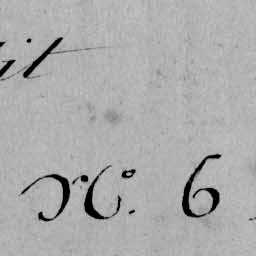 it
No. 6